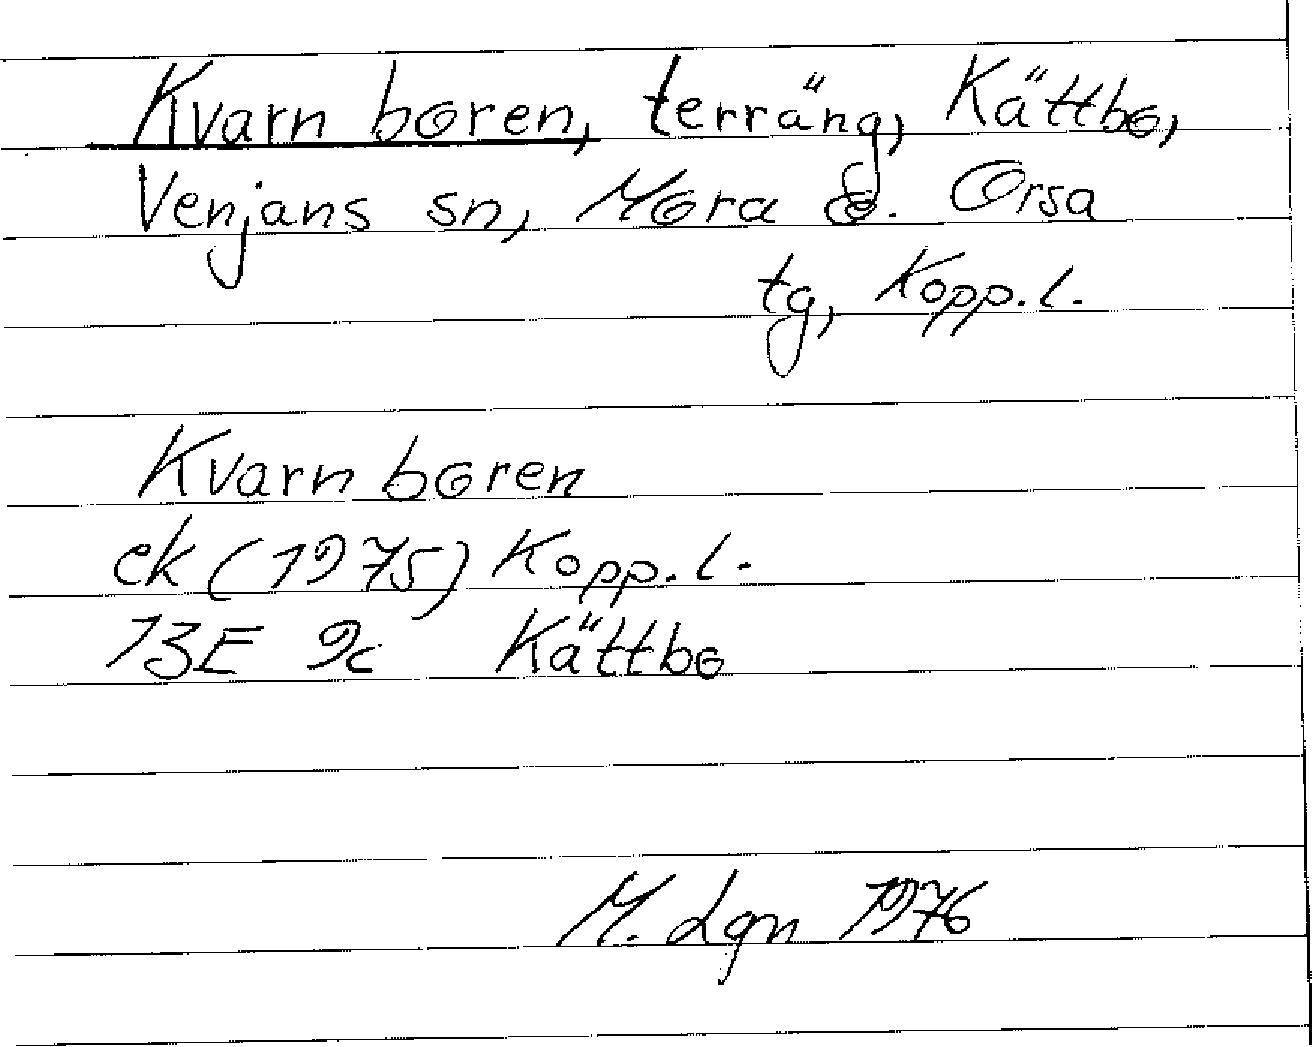 Kvarnboren, terräng, Kättbo,
Venjans sn, Mora o. Orsa
tg, Kopp.l.
Kvarnboren
ek (1975) Kopp.l.
13E 9c Kättbo
M. Lgn 1976